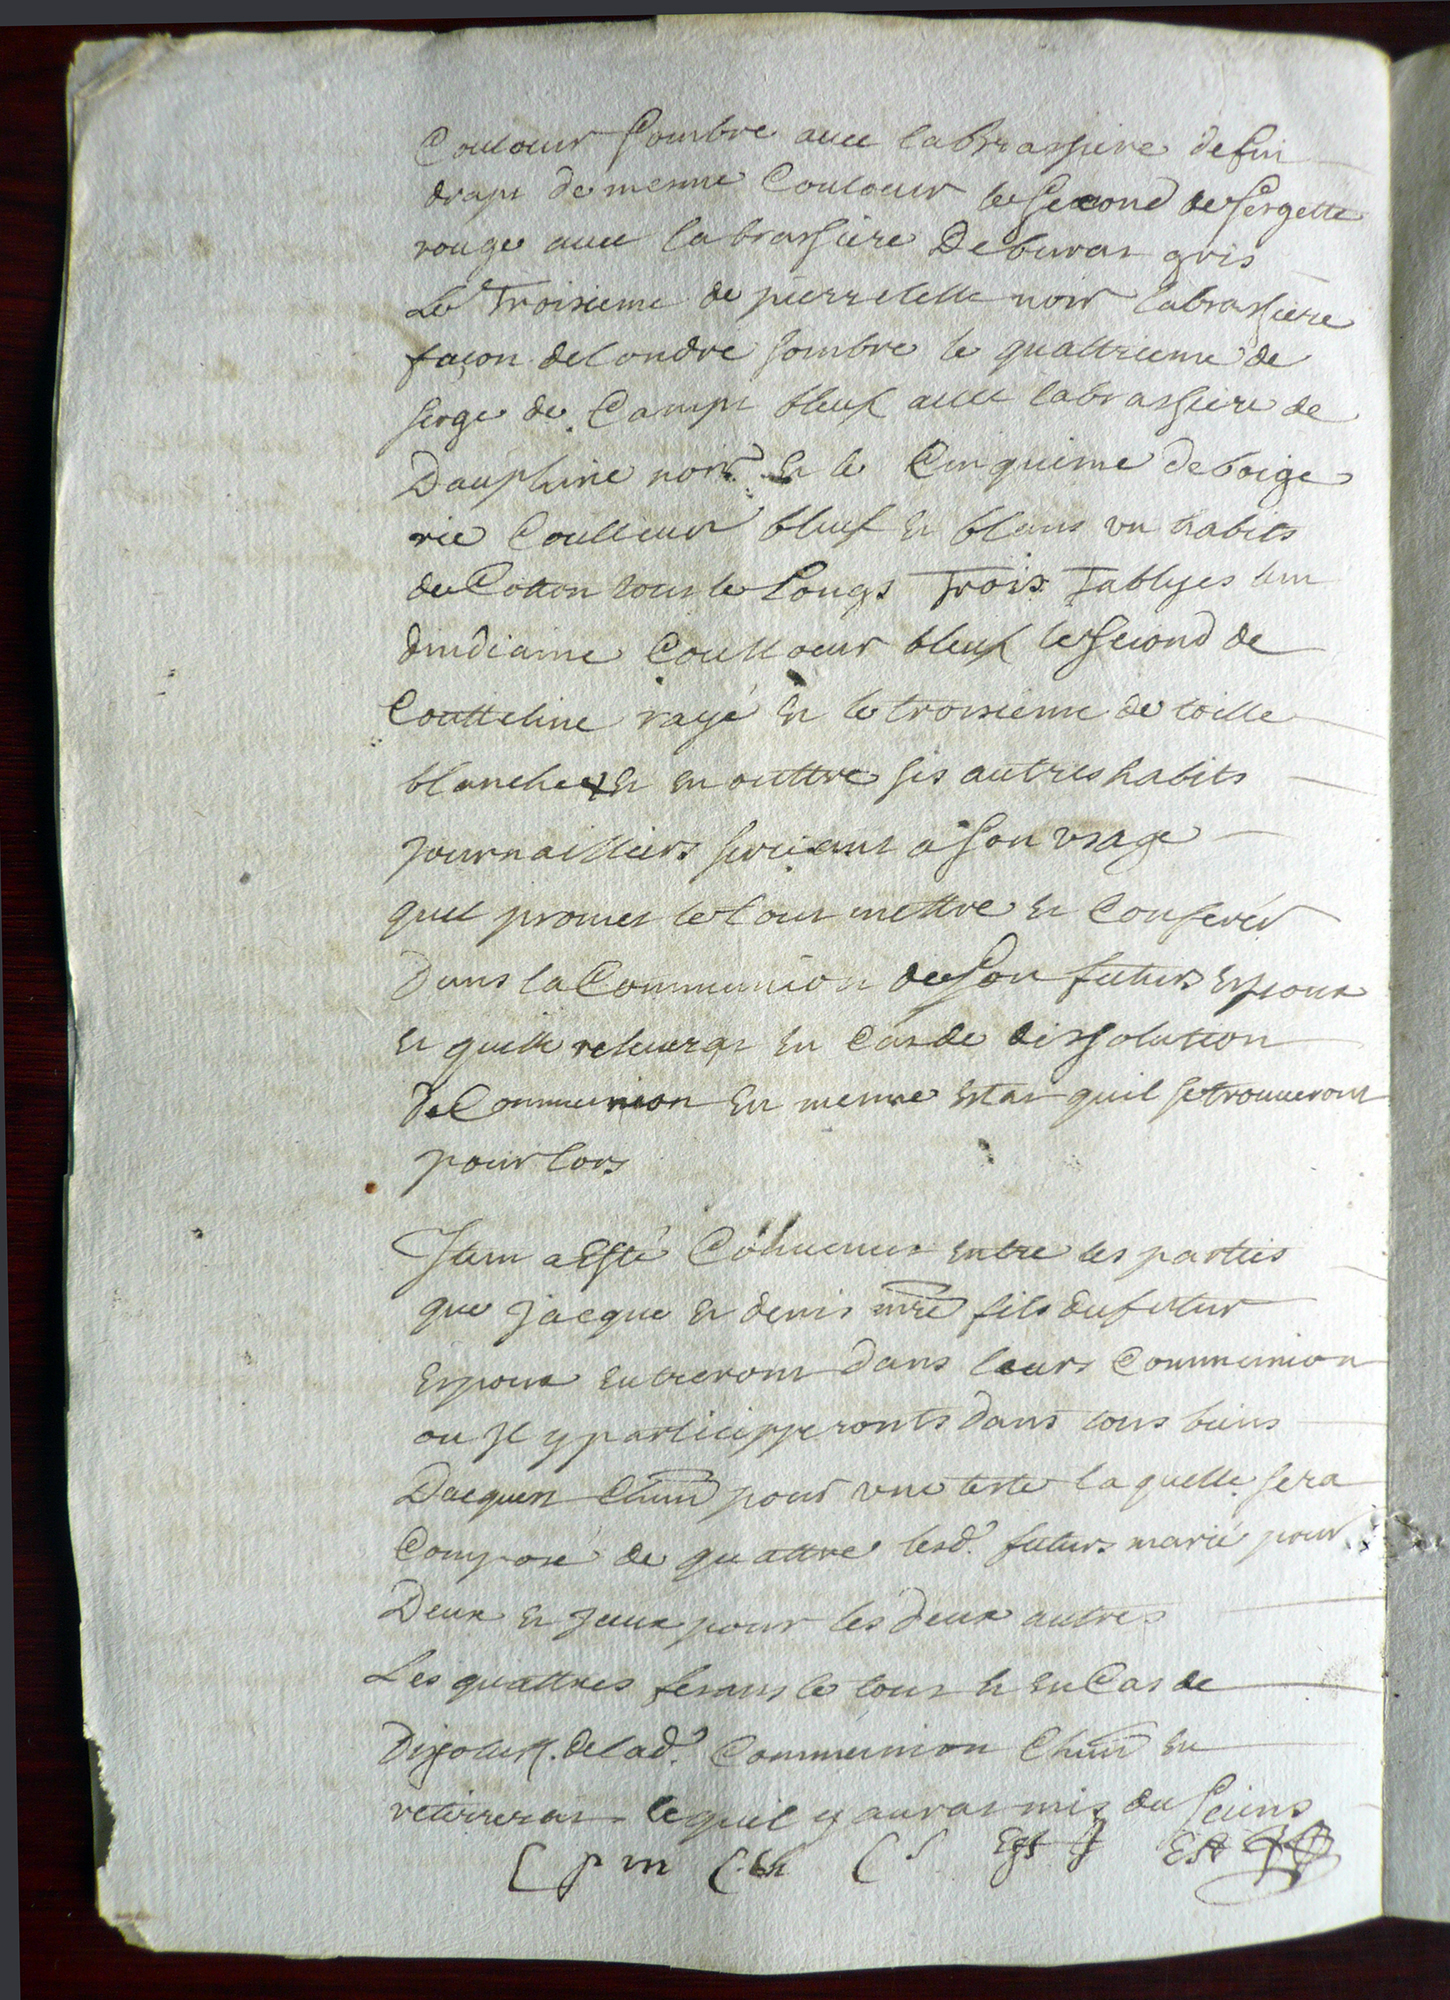 Couloeur sombre avec la brassiere de fin
drapt de mesme Couloeur le second de sergette
rouge avec la brassiere De burat gris
Le Troisieme de pierrelatte noir la brassiere
façon de londre sombre le quattrieme de
serge de Camps bleuf avec la brassiere de
Dauphine noir Et le Cinquieme de
Coulleur bleuf Et blanc un habits
de Cotton tout le Longs Trois Tabliers lun
dindiaine Coulloeur bleuf le second de
Coutteline rayé Et le troisieme de toille
blanche Et en outtre ses autres habits
journailliers servant a son usage
quel promet le tout mettre Et Conferer
Dans la Communion de son futurs Espoux
Et quelle releverat En Cas de dissolution
de Communion En mesme Estat quil se trouveront
pour lors
Item a Esté Convenut entre les parties
que jacque Et denis mre fils du futur
Espoux Entreront dans leurs Communion
ou Jl y participperonts dans tous biens
Dacquest Chun pour une teste laquelle sera
Composé de quattre lesd. futurs marié pour
Deux Et jeux pour les deux autres
Les quattres fesans le tout Et En Cas de
Disolut. de lad. Communion Chun En
retirrerat le quil y aurat mis du siens